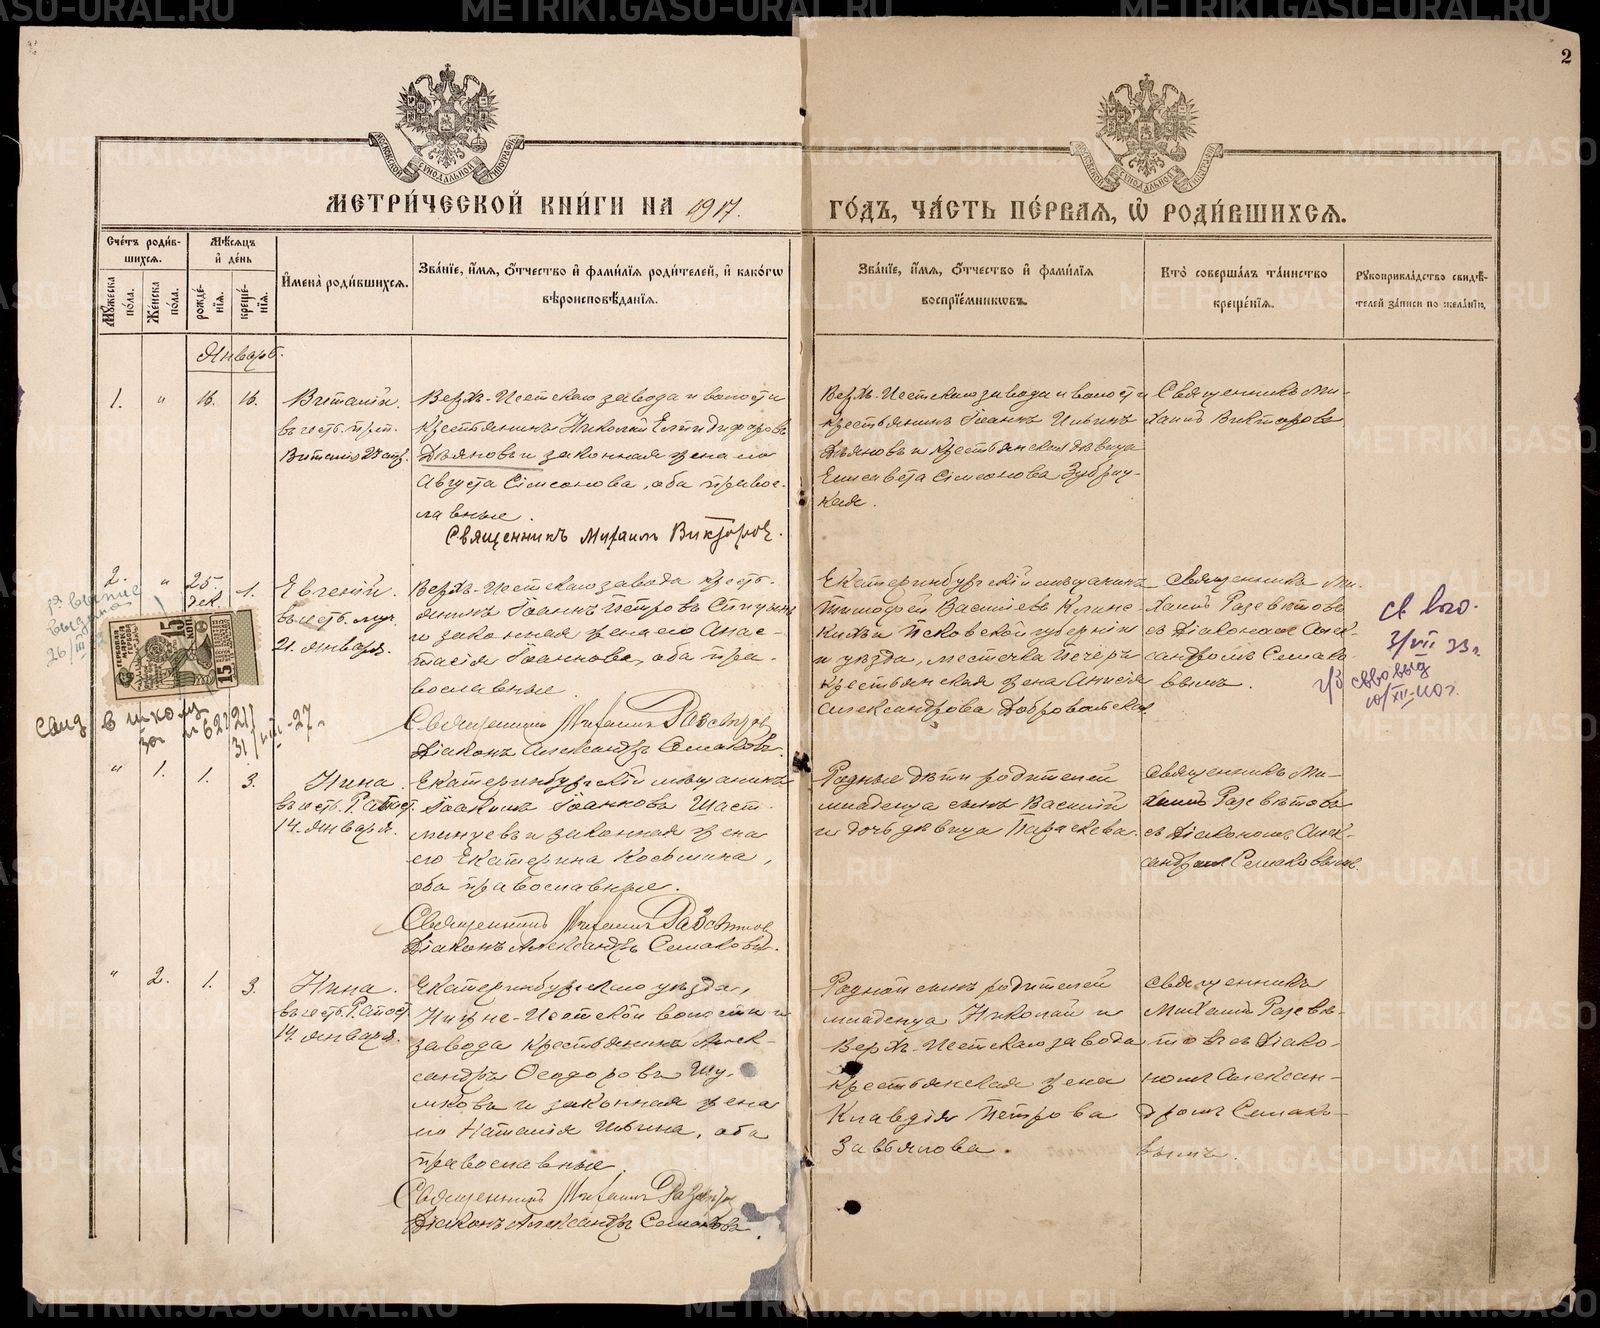 METRIKI.GASO-URAL.RU
2
МОСКОВСКОЙ СѴНОДАЛЬНОЙ ТИПОГРАФІИ
МЕТРИ́ЧЕСКОЙ КНИ́ГИ НА 1917. ГО́ДЪ, ЧА́СТЬ ПЕ́РВАЯ, Ѡ҆ РОДИ́ВШИХСЯ.
Сче́тъ роди́вшихся.
Мꙋ́жеска по́ла.
Же́нска по́ла.
Мѣ́сяцъ и҆ де́нь
рожде́нїя.
креще́нїя.
И҆мена̀ роди́вшихся.
Зва́нїе, и҆́мя, ѻ҆́тчество и҆ фами́лїя роди́телей, и҆ како́гѡ
вѣроисповѣ́данїя.
Зва́нїе, и҆́мя, ѻ҆́тчество и҆ фами́лїя
воспрїе́мникѡвъ.
Кто̀ соверша́лъ та́инство
креще́нїя.
Рꙋкоприкла́дство свидѣ́-
телей за́писи по жела́нїю.
Январь.
1. " 16. 16.
Виталій.
въ честь прп.
Верхъ-Исетскаго завода и волости
крестьянинъ Николай Елпидифоровъ
Дѣяновъ и законная жена его
Августа Сімеонова, оба правос-
лавные.
Священникъ Михаилъ Викторовъ.
Верхъ-Исетскаго завода и волости
крестьянинъ Іоаннъ Ильинъ
Дѣяновъ и крестьянская дѣвица
Елисавета Сімеонова Зубриц-
кая.
Священникъ Ми-
хаилъ Викторовъ
2. " 25. дек. 1.
Евгеній.
въ честь муч.
21. января.
Верхъ-Исетскаго завода кресть-
янинъ Іоаннъ Петровъ
и законная жена его Анас-
тасія Іоаннова, оба пра-
вославные.
Священникъ Михаилъ Разсвѣтовъ
Діаконъ Александръ Семаковъ.
Екатеринбургскій мѣщанинъ
Тимофей Василіевъ
и Псковской губерніи
и уѣзда, местечка Печеръ
крестьянская жена Анисія
Александрова Добровольская
Священникъ Ми-
хаилъ Разсвѣтовъ
съ Діакономъ Алек-
сандромъ Семако-
вымъ.
ГЕРБОВАЯ МАРКА
15 КОП
15
в школу
за № 621/211
31/VIII-27 г
св. выд.
2/VII 33 г.
" 1. 1. 3.
Нина.
въ честь Равноап.
14. января.
Екатеринбургскій мѣщанинъ
Іоакимъ Іоанновъ Шаст-
линцевъ и законная жена
его Екатерина Косьмина,
оба православные.
Священникъ Михаилъ Разсвѣтовъ
Діаконъ Александръ Семаковъ.
Родные дѣти родителей
младенца сынъ Василій
и дочь дѣвица Параскева.
Священникъ Ми-
хаилъ Разсвѣтовъ
съ Діакономъ Алек-
сандромъ Семаковымъ.
" 2. 1. 3.
Нина.
въ честь Равноап.
14. января.
Екатеринбургскаго уѣзда,
Нижне-Исетской волости и
завода крестьянинъ Алек-
сандръ Ѳеодоровъ Шу-
лковъ и законная жена
его Наталія Ильина, оба
православные.
Священникъ Михаилъ Разсвѣтовъ
Діаконъ Александръ Семаковъ.
Родной сынъ родителей
младенца Николай и
Верхъ-Исетскаго завода
крестьянская жена
Клавдія Петрова
Завьялова.
Священникъ
Михаилъ Разсвѣ-
товъ съ Діако-
номъ Алексан-
дромъ Семако-
вымъ.